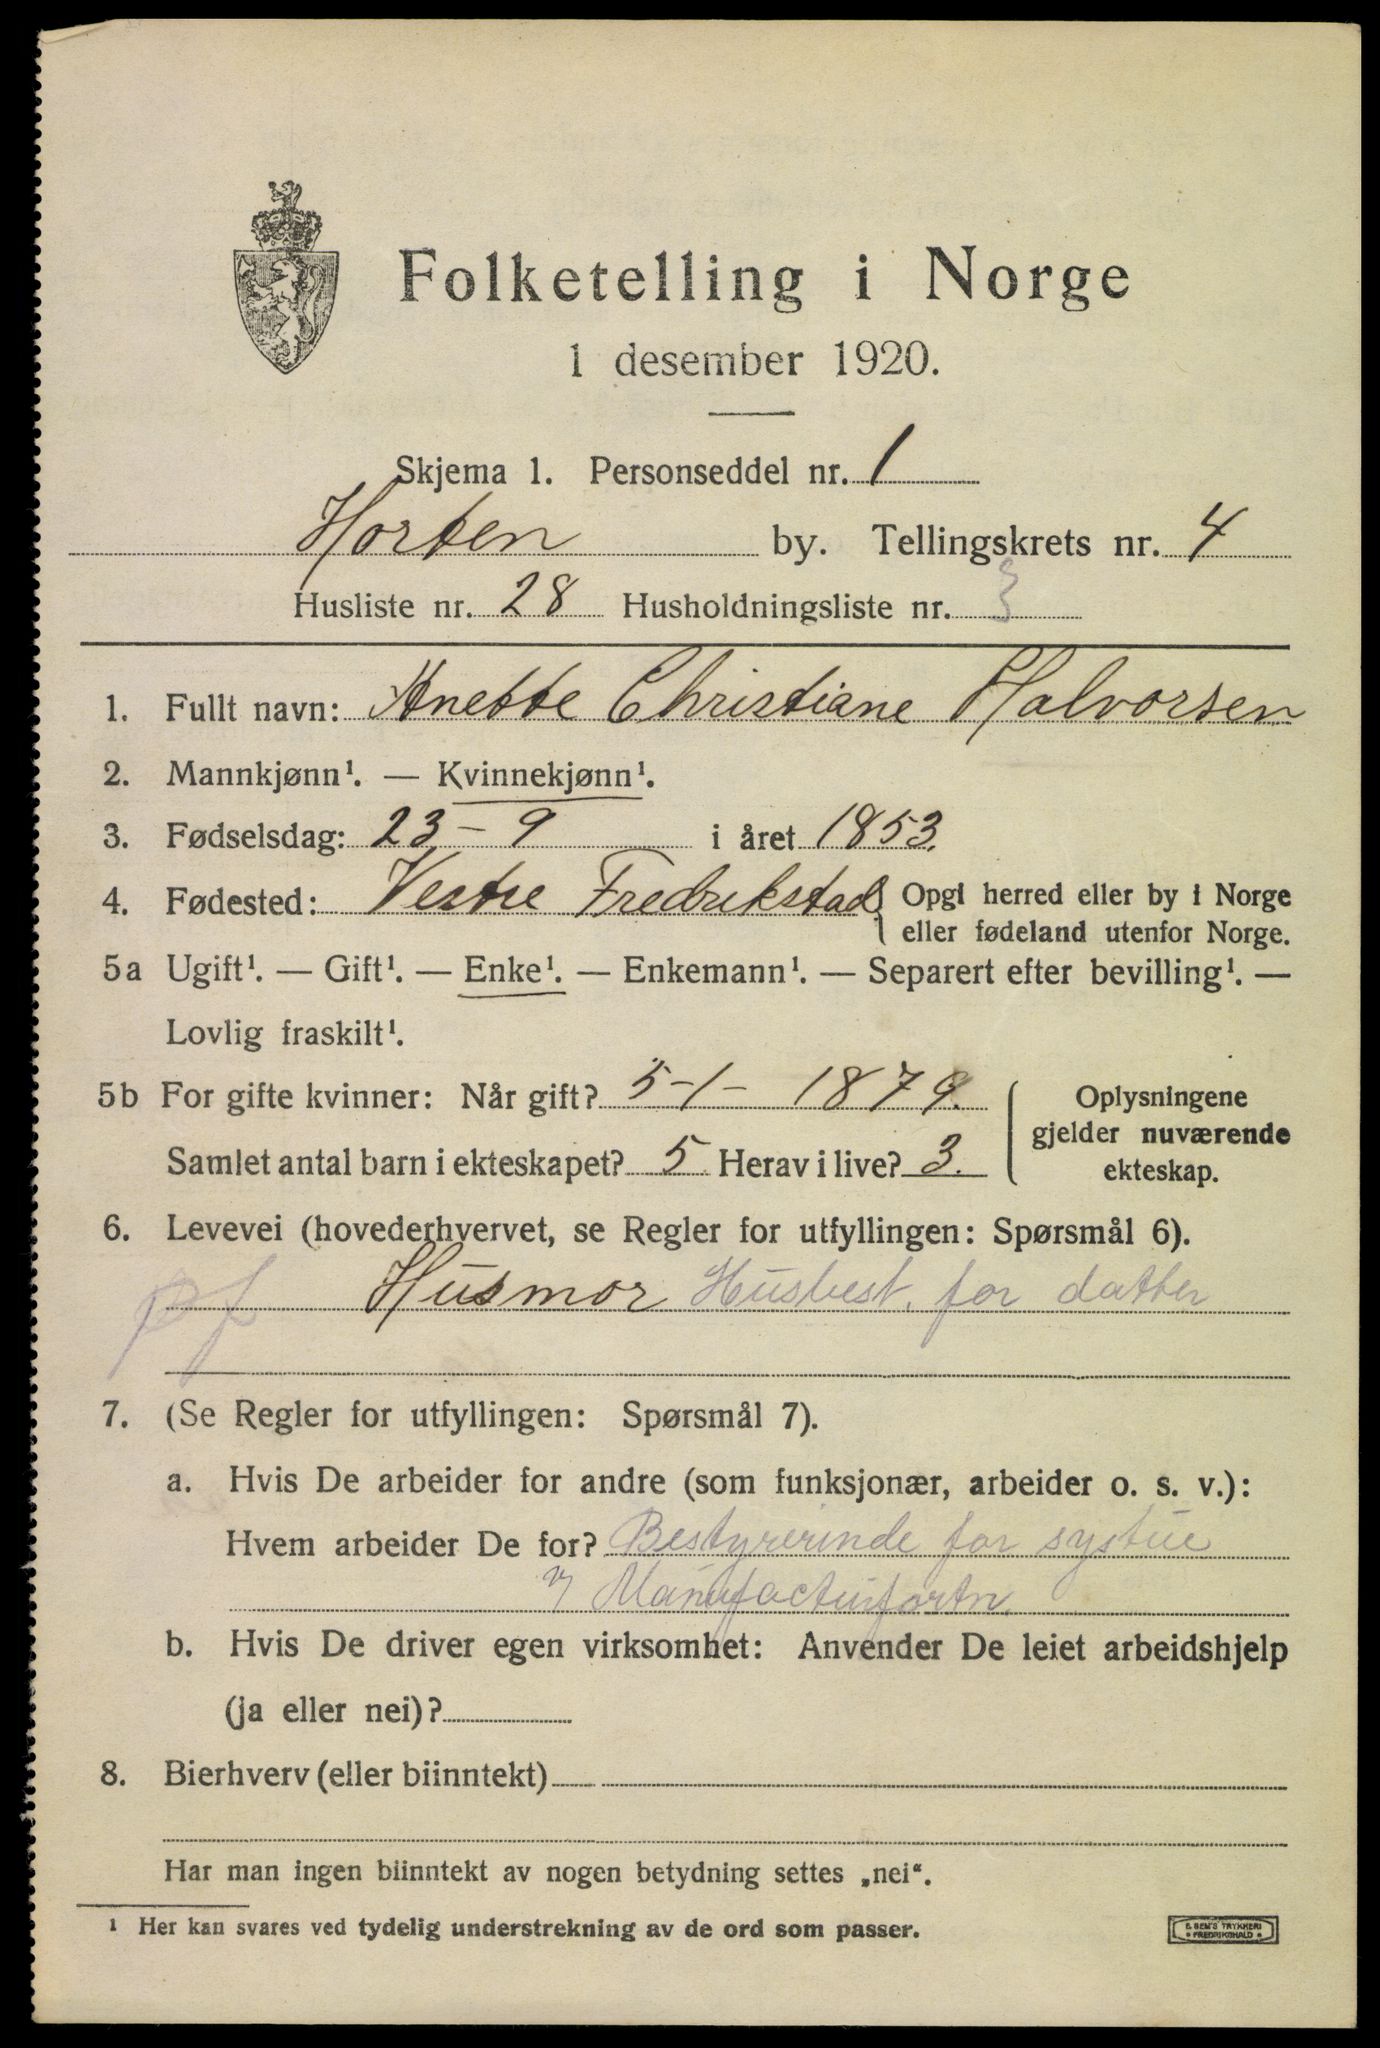 Folketelling i Norge
1 desember 1920.
Skjema 1. Personseddel nr. 1
Horten by. Tellingskrets nr. 4
Husliste nr. 28 Husholdningsliste nr. 3
1. Fullt navn: Anette Christiane Halvorsen
2. Mannkjønn¹. — Kvinnekjønn¹.
3. Fødselsdag: 23 - 9 i året 1853.
4. Fødested: Vestre Fredrikstad { Opgi herred eller by i Norge
eller fødeland utenfor Norge.
5a Ugift¹. — Gift¹. — Enke¹. — Enkemann¹. — Separert efter bevilling¹. —
Lovlig fraskilt¹.
5b For gifte kvinner: Når gift? 5-1- 1879. Oplysningene
gjelder nuværende
Samlet antal barn i ekteskapet? 5 Herav i live? 3. ekteskap.
6. Levevei (hovederhvervet, se Regler for utfyllingen: Spørsmål 6).
pf Husmor Husbest. for datter
7. (Se Regler for utfyllingen: Spørsmål 7).
a. Hvis De arbeider for andre (som funksjonær, arbeider o. s. v.):
Hvem arbeider De for? Bestyrerinde for systue
v/ Manufacturfortn.
b. Hvis De driver egen virksomhet: Anvender De leiet arbeidshjelp
(ja eller nei)?
8. Bierhverv (eller biinntekt)
Har man ingen biinntekt av nogen betydning settes „nei“.
¹ Her kan svares ved tydelig understrekning av de ord som passer.
E. SEM'S TRYKKERI
FREDRIKSHALD